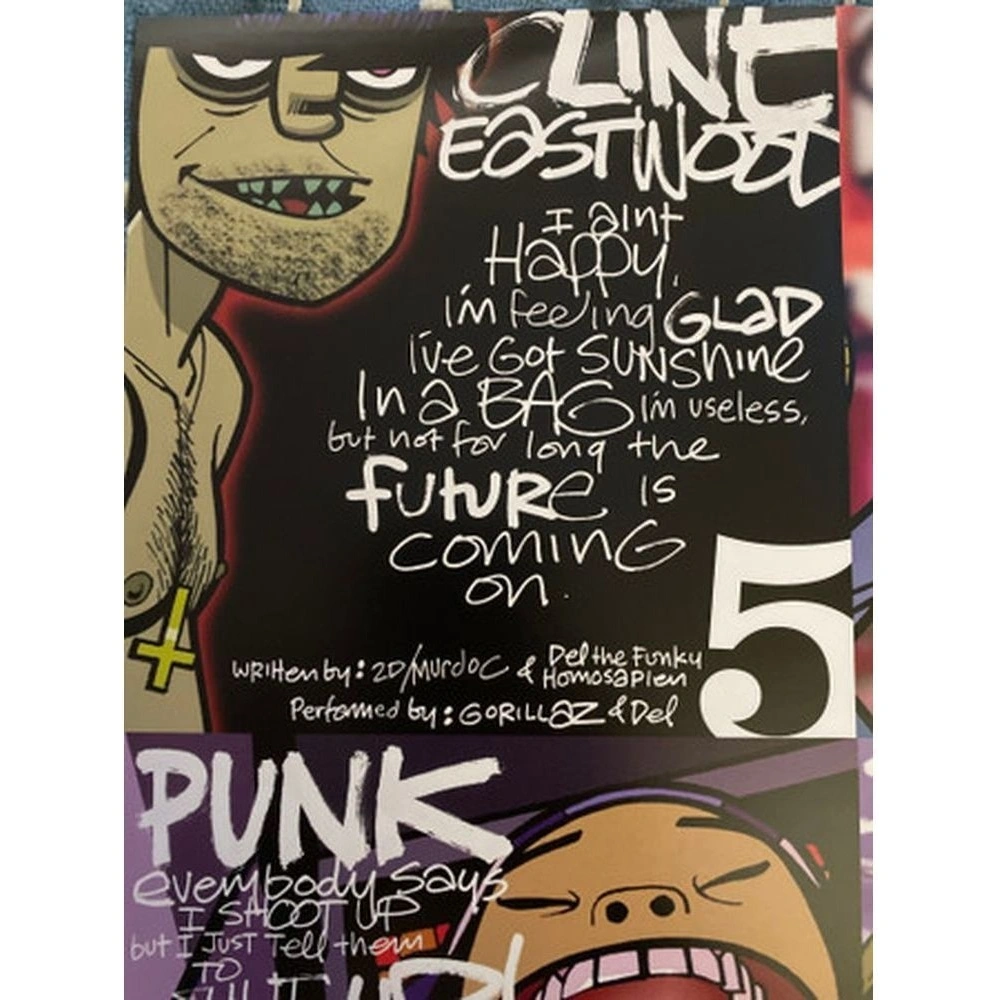 CLINt
EaSTWOOD
I aint
Happy.
I'm feeling GLaD
I've Got SUNShine
In a BAG I'm useless,
but not for long the
futuRe is
cominG
on.
WRItten by: 2D/MURdoC & Del the Funky Homosapien
Performed by: GORILLaZ & Del
5
PUNK
everybody says
I SHOOT UP
but I JUST Tell them
TO
UP!